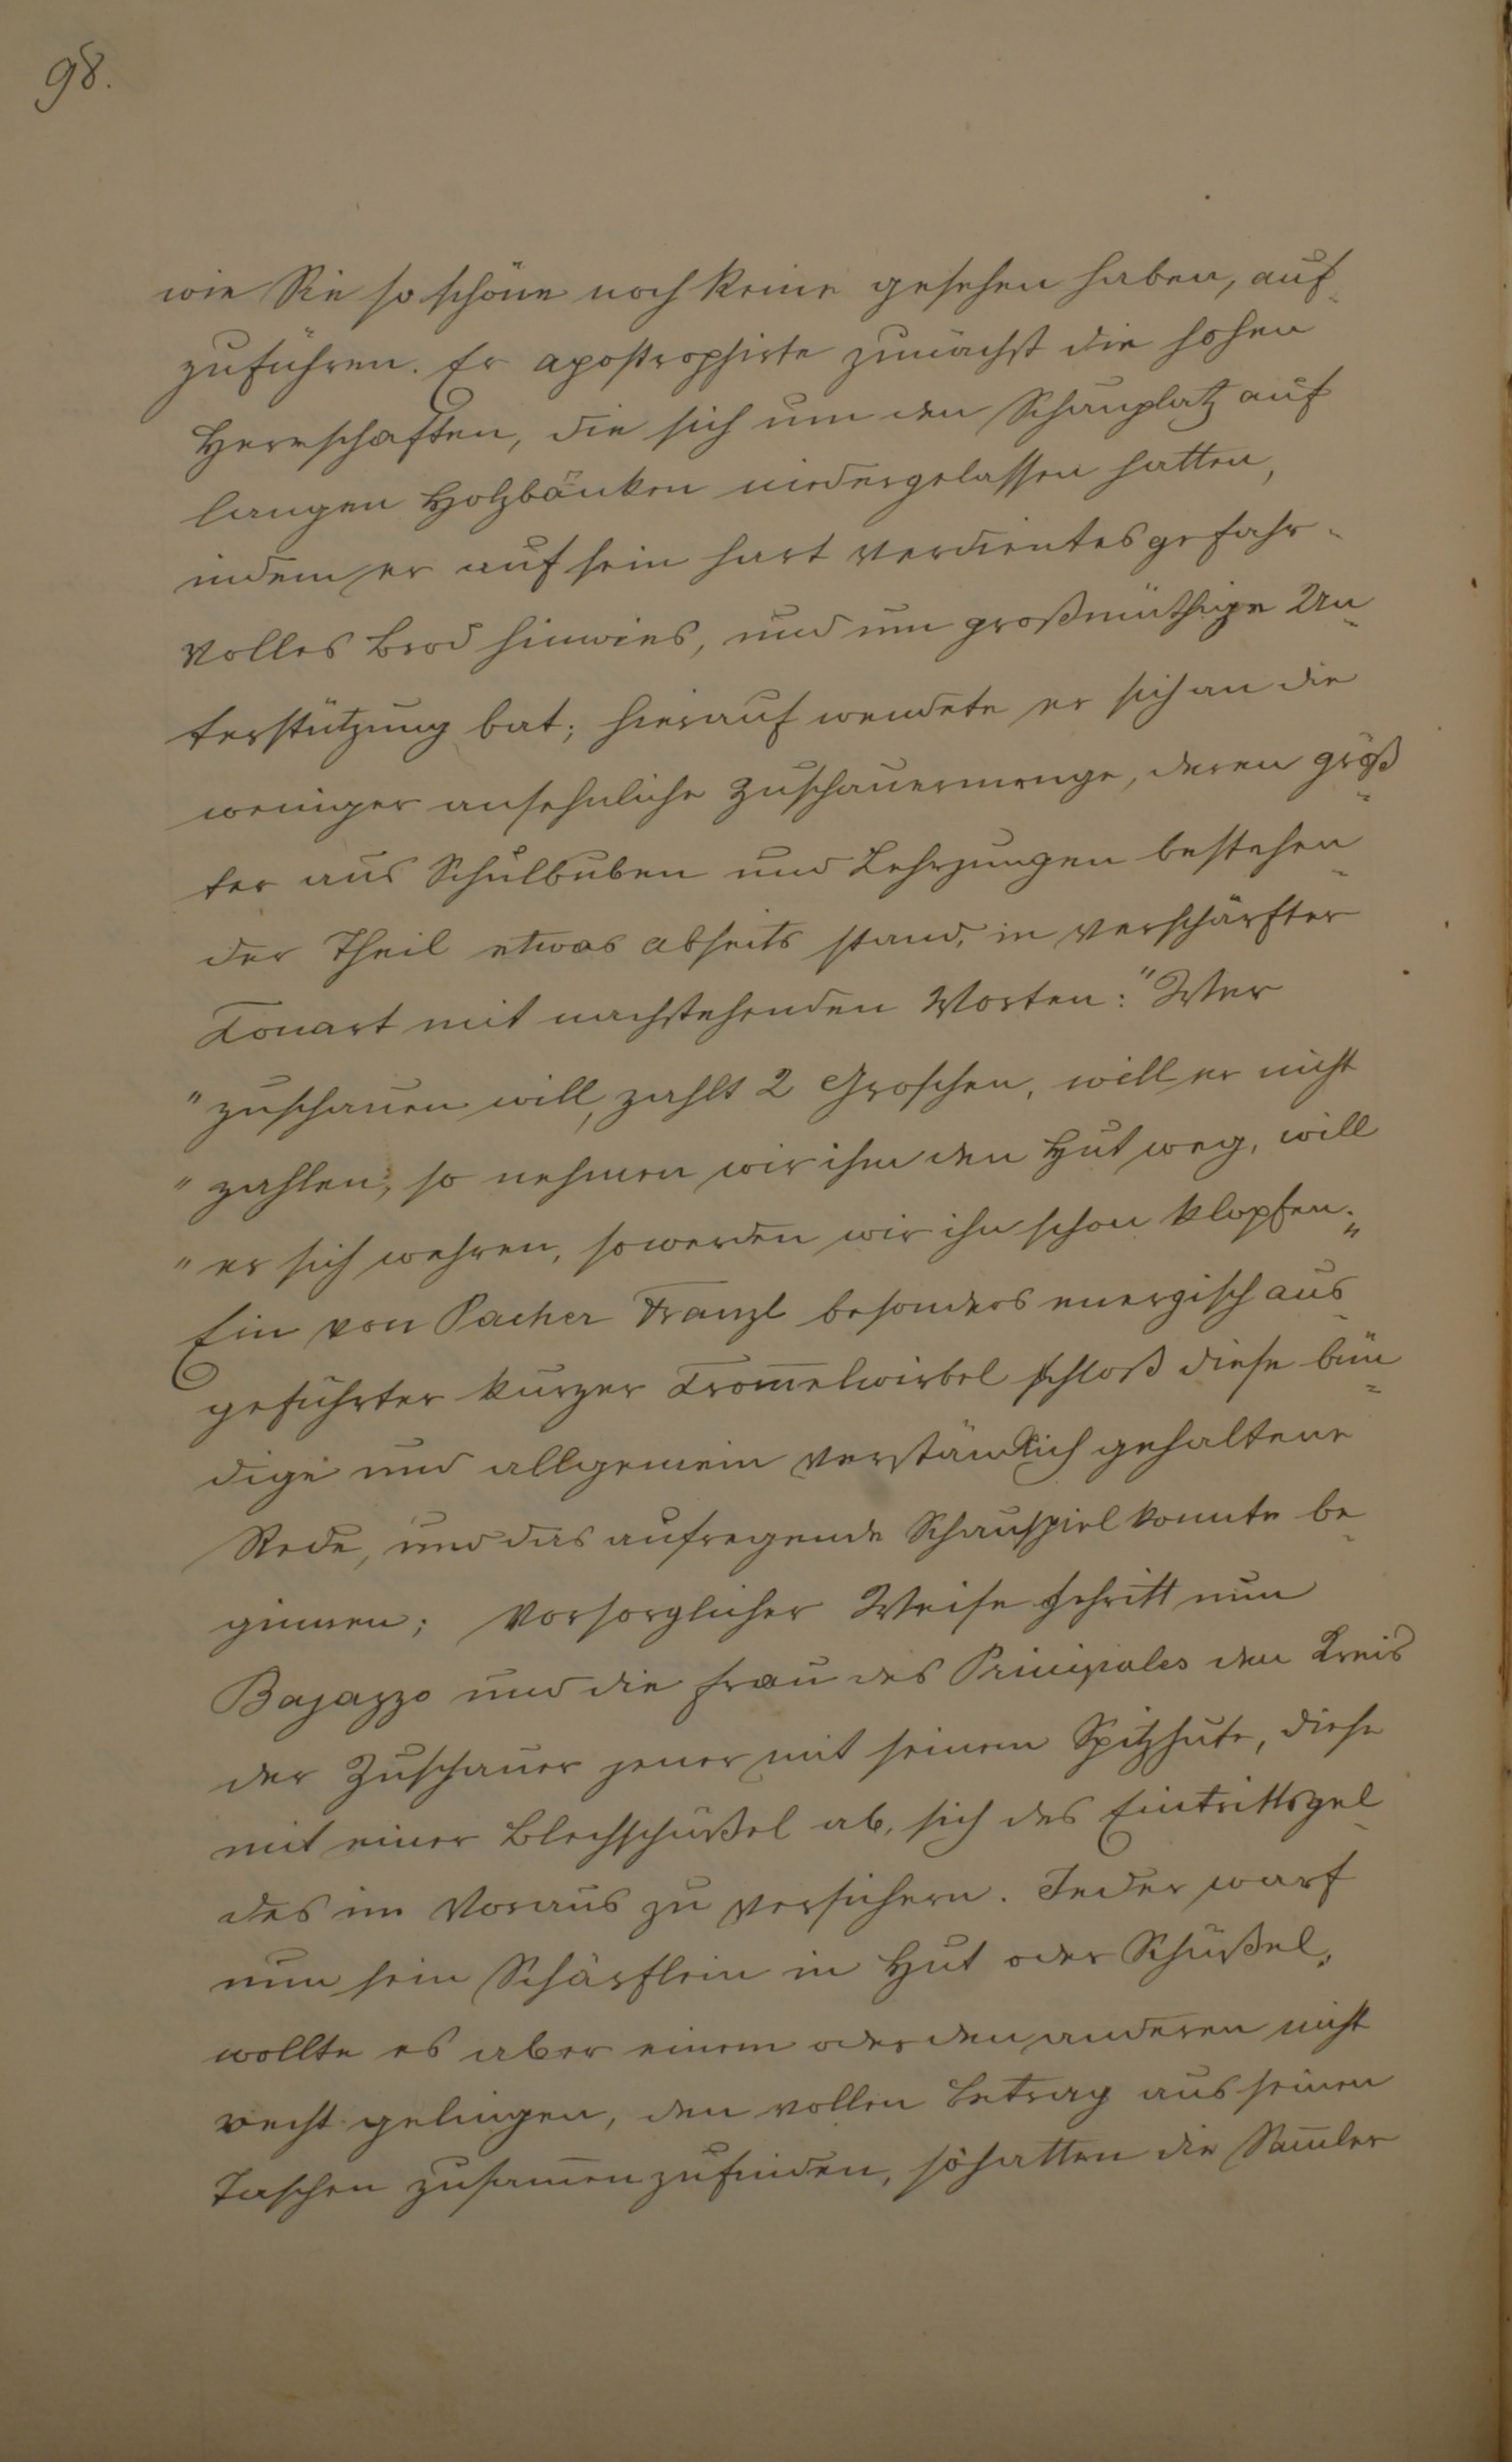 98.
wie Sie so schöne noch keine gesehen haben, auf-
zuführen. Er apostrophirte zunächst die hohen
Herrschaften, die sich um den Schauplatz auf
langen Holzbänken niedergelassen hatten,
indem er auf sein hart verdientes gefahr-
volles Brod hinwies, und um großmüthige Un-
terstützung bat; hierauf wendete er sich an die
weniger ansehnliche Zuschauermenge, deren größ-
ter aus Schulbuben und Lehrjungen bestehen-
der Theil etwas abseits stand, in verschärfter
Tonart mit nachstehenden Worten: "Wer
"zuschauen will, zahlt 2 Groschen, will er nicht
"zahlen, so nehmen wir ihm den Hut weg, will
"er sich wehren, so werden wir ihn schon klopfen."
Ein von Pacher Franzl besonders energisch aus-
geführter kurzer Trom̅elwirbel schloß diese bün-
dige und allgemein verständlich gehaltene
Rede, und das aufregende Schauspiel konnte be-
ginnen; vorsorglicher Weise schritt nun
Bajazzo und die Frau des Prinzipales den Kreis
der Zuschauer jener mit seinem Spitzhute, diese
mit einer Blechschüßel ab, sich des Eintrittsgel-
des im Voraus zu versichern. Jeder warf
nun sein Schärflein in Hut oder Schüßel,
wollte es aber einem oder den anderen nicht
recht gelingen, den vollen Betrag aus seinen
Taschen zusam̅enzufinden, so hatten die Sam̅ler